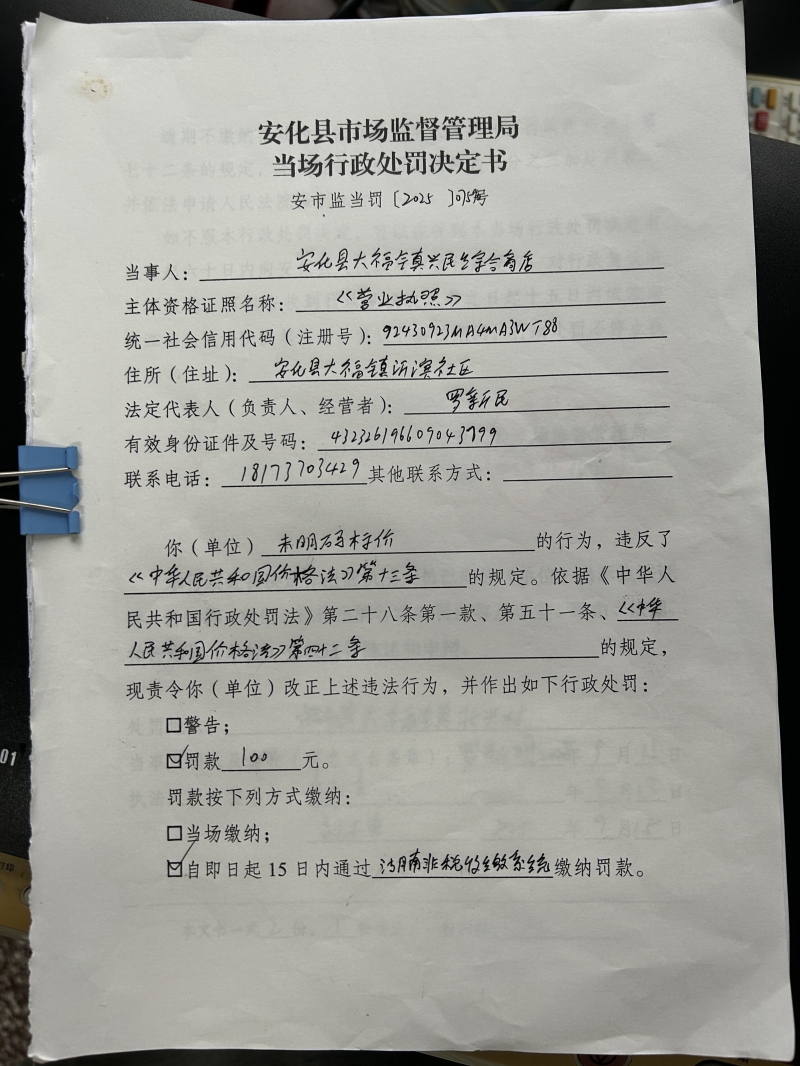 安化县市场监督管理局
当场行政处罚决定书
安市监当罚〔2025〕075号
当事人：安化县大福镇兴民生综合商店
主体资格证照名称：《营业执照》
统一社会信用代码（注册号）：92430923MA4MA3WT88
住所（住址）：安化县大福镇沂溪社区
法定代表人（负责人、经营者）：罗新民
有效身份证件及号码：432326196609043799
联系电话：18173703429 其他联系方式：
你（单位）未明码标价的行为，违反了
《中华人民共和国价格法》第十三条的规定。依据《中华人
民共和国行政处罚法》第二十八条第一款、第五十一条、《中华
人民共和国价格法》第四十二条的规定，
现责令你（单位）改正上述违法行为，并作出如下行政处罚：
□警告；
☑罚款 100 元。
罚款按下列方式缴纳：
□当场缴纳；
☑自即日起 15 日内通过湖南非税收缴系统缴纳罚款。
01